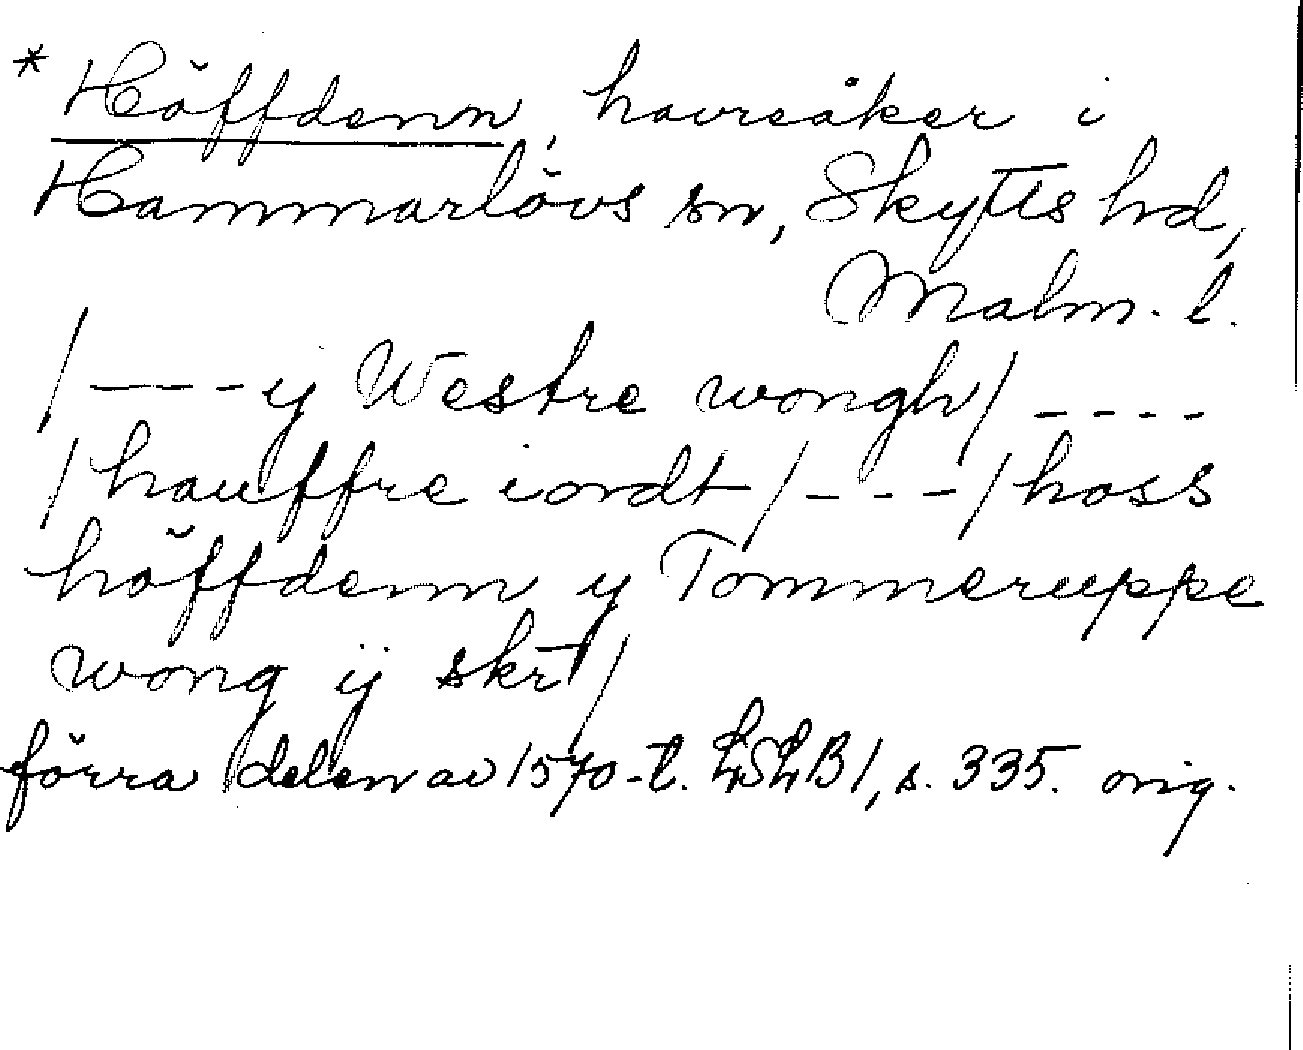 * Höffdenn, havreåker i
Hammarlövs sn, Skytts hd,
Malm. l.
/---- y Westre wongh/ ----
/hauffre iordt/----/hoss
höffdenn y Tommeruppe
wong ij skr/
förra delen av 1570-t. LSLB 1, s. 335. orig.